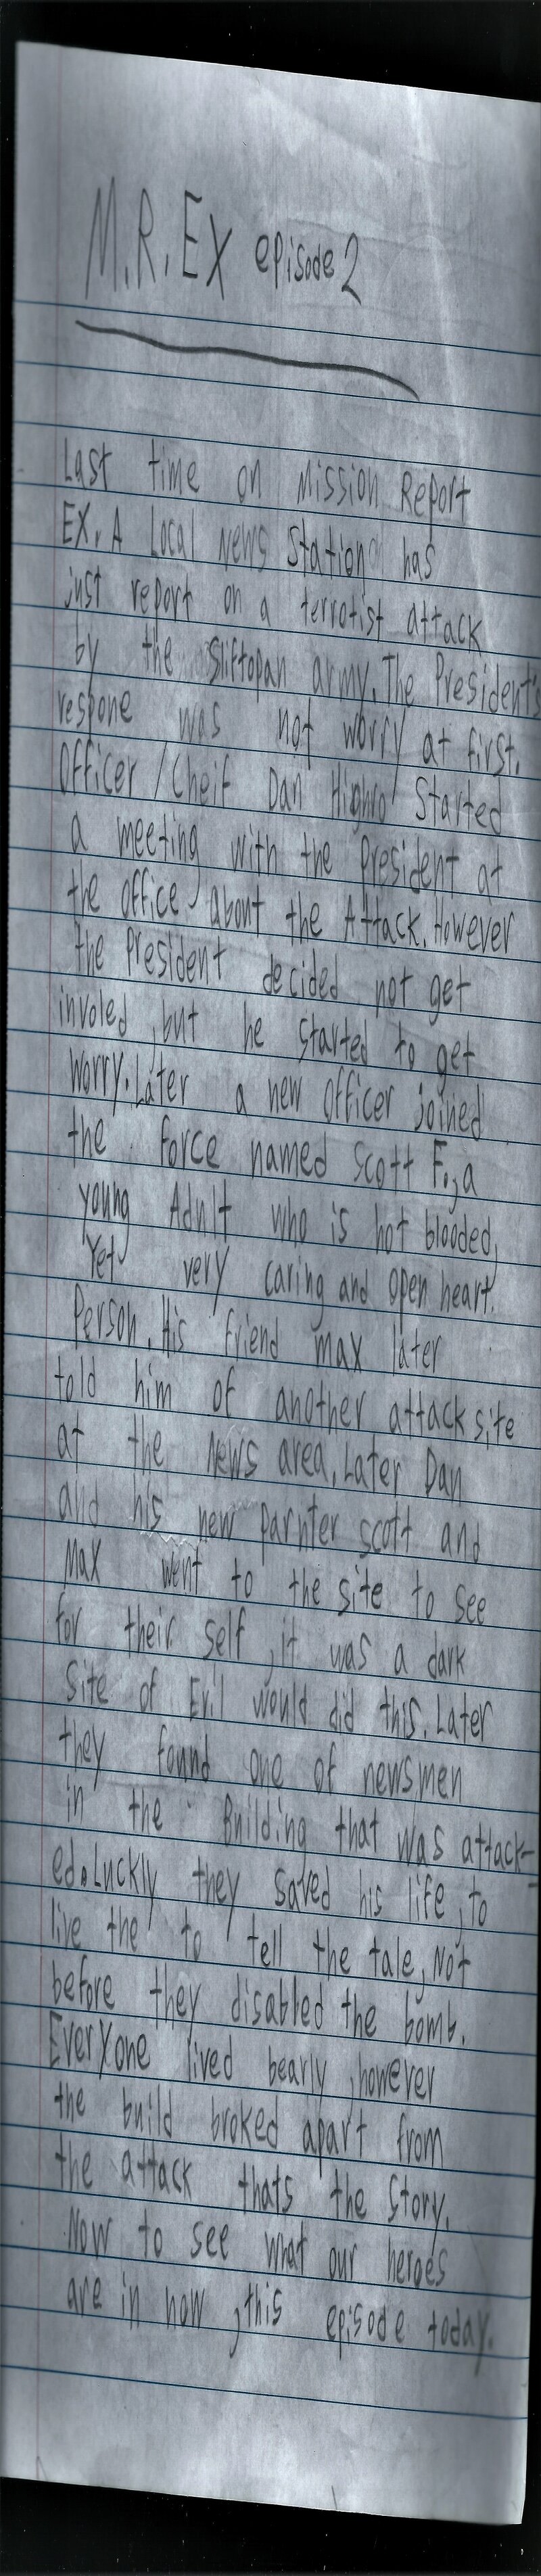 M.R.EX episode 2
Last time on Mission Report
EX. A Local News Station has
just report on a terrotist attack
by the Sliftopan army. The President's
respone was not worry at first.
Officer / Cheif Dan Highro Started
a meeting with the President at
the office about the Attack. However
the President decided not get
involed, but he started to get
worry. Later a new officer joined
the force named Scott F., a
young Adult who is hot blooded,
Yet very caring and open heart.
Person. His friend max later
told him of another attack site
at the News area, Later Dan
and his new parhter scott and
Max went to the site to see
for their self, it was a dark
site of Evil would did this. Later
they found one of newsmen
in the Building that was attack-
ed. Luckly they saved his life, to
live the to tell the tale, Not
before they disabled the bomb.
Everyone lived bearly, however
the build broked apart from
the attack thats the story.
Now to see what our heroes
are in now, this episode today.